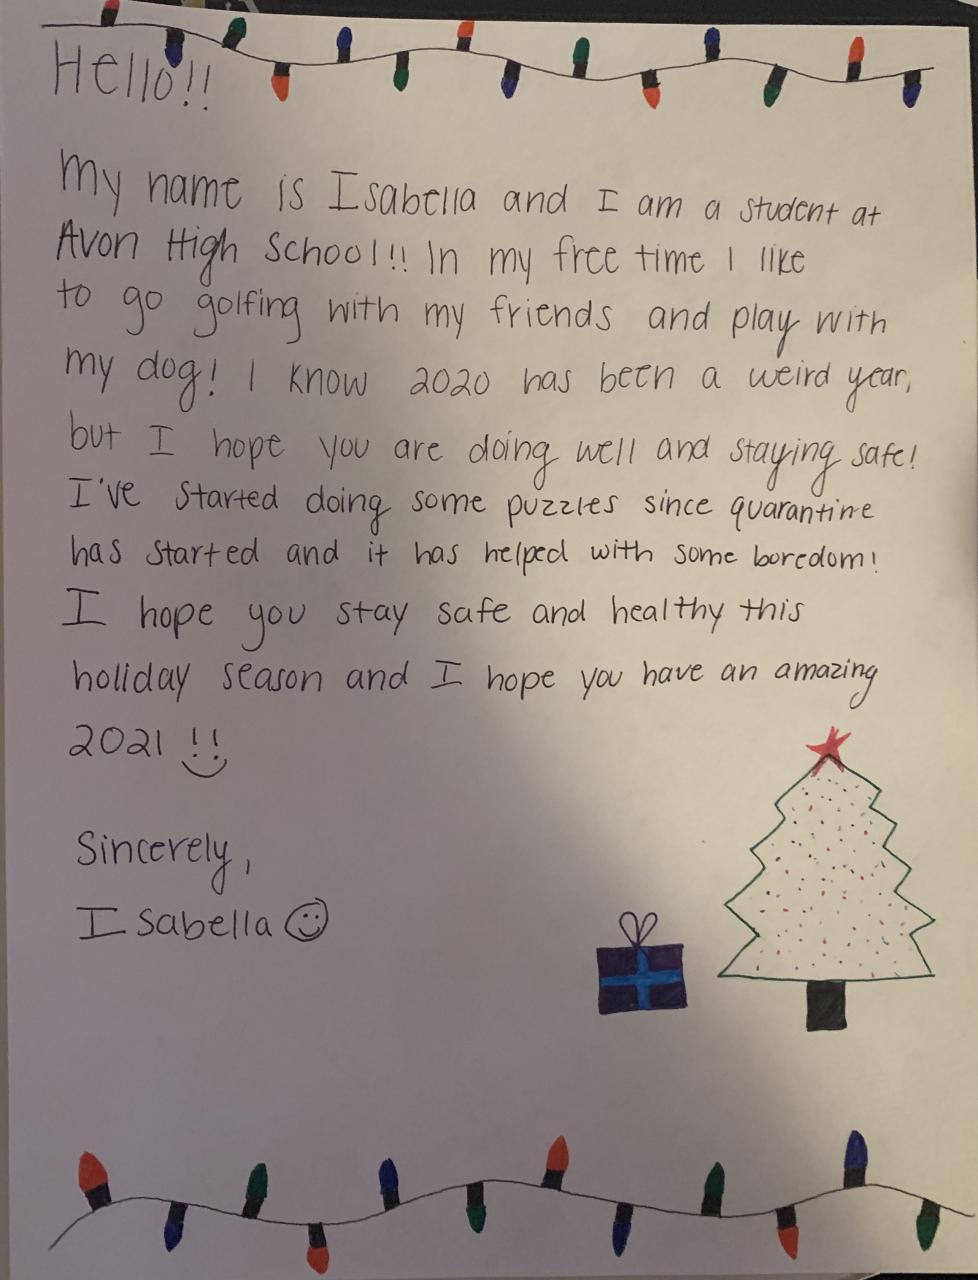 Hello!!
My name is Isabella and I am a student at
Avon High School!! In my free time I like
to go golfing with my friends and play with
my dog! I know 2020 has been a weird year,
but I hope you are doing well and staying safe!
I've started doing some puzzles since quarantine
has started and it has helped with some boredom!
I hope you stay safe and healthy this
holiday season and I hope you have an amazing
2021 !!
Sincerely,
Isabella